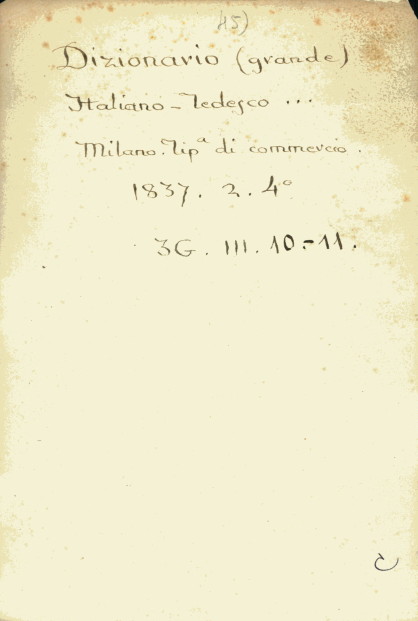 45)
Dizionario (grande)
Italiano - Tedesco ...
Milano. Tipª di commercio.
1837. 2. 4º
3G. III. 10-11.